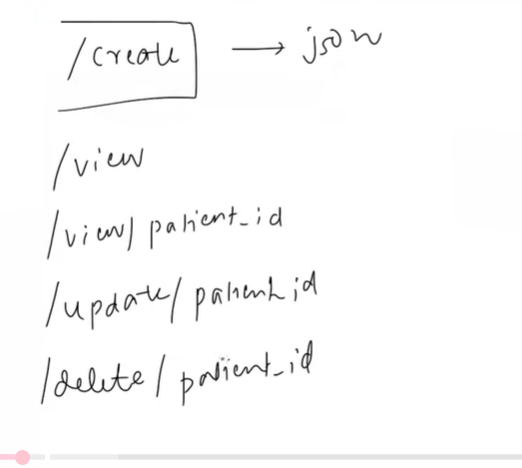 /create → json
/view
/view/patient_id
/update/patient_id
/delete/patient_id